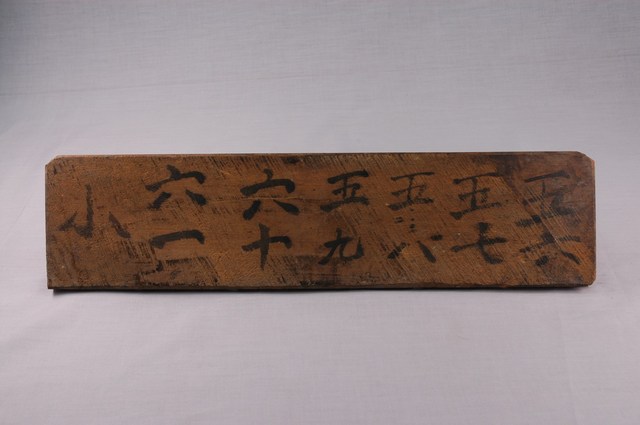 五六
五七
五八
五九
六十
六一
小